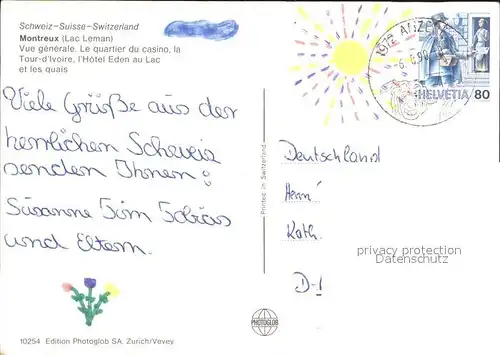 Schweiz-Suisse-Switzerland
Montreux (Lac Leman)
Vue générale. Le quartier du casino, la
Tour-d'Ivoire, l'Hôtel Eden au Lac
et les quais
1972 ANZE
HELVETIA 80
Viele Grüße aus der
herrlichen Schweiz
senden Ihnen:
Susanne Tim Tobias
und Eltern.
Printed in Switzerland
Deutschland
Herrn
Kath.
D-
privacy protection
Datenschutz
PHOTOGLOB
10254 Edition Photoglob SA. Zurich/Vevey